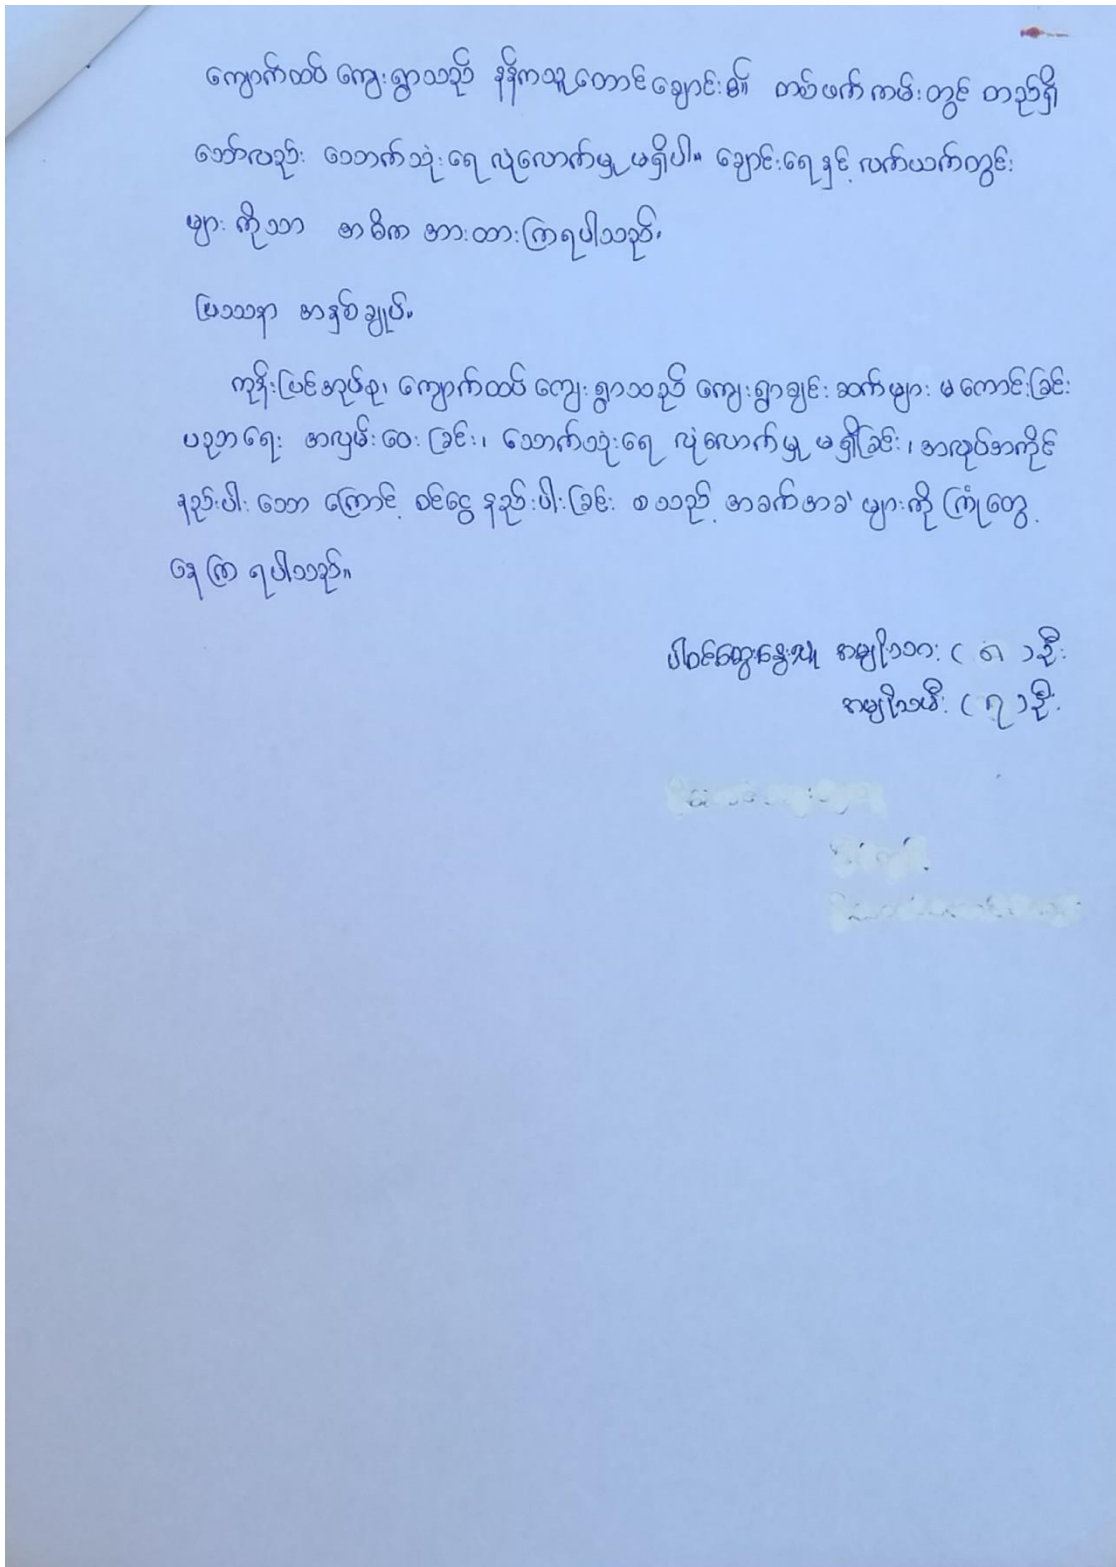 ကျောက်ထပ် ကျေးရွာသည် နန်ကသူတောင်ချောင်း၏ တစ်ဖက်ကမ်းတွင် တည်ရှိ
သော်လည်း သောက်သုံးရေ လုံလောက်မှု မရှိပါ။ ချောင်းရေနှင့် လက်ယက်တွင်း
များ ကိုသာ အဓိက အားထားကြရပါသည်။
ပြဿနာ အနှစ်ချုပ်။
ကုန်းပြင်အုပ်စု၊ ကျောက်ထပ် ကျေးရွာသည် ကျေးရွာချင်း ဆက်များ မကောင်းခြင်း
ပညာရေး အလှမ်းဝေးခြင်း၊ သောက်သုံးရေ လုံလောက်မှု မရှိခြင်း၊ အလုပ်အကိုင်
နည်းပါး သောကြောင့် ဝင်ငွေ နည်းပါးခြင်း စသည့် အခက်အခဲများကို ကြုံတွေ့
နေကြ ရပါသည်။
ပါဝင်ဆွေးနွေးသူ အမျိုးသား ( ၈ ) ဦး
အမျိုးသမီး ( ၇ ) ဦး